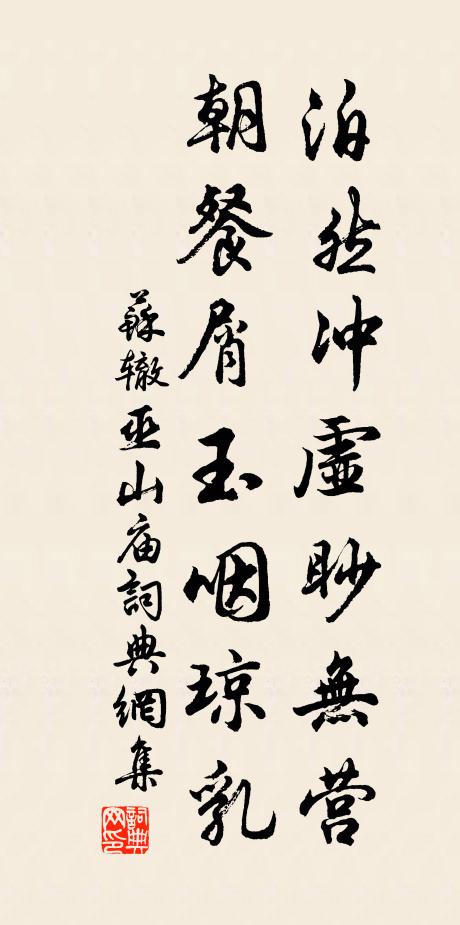 泊然冲虚眇無营
朝餐屑玉咽琼乳
蘇辙巫山庙詞典網集
詞典网印